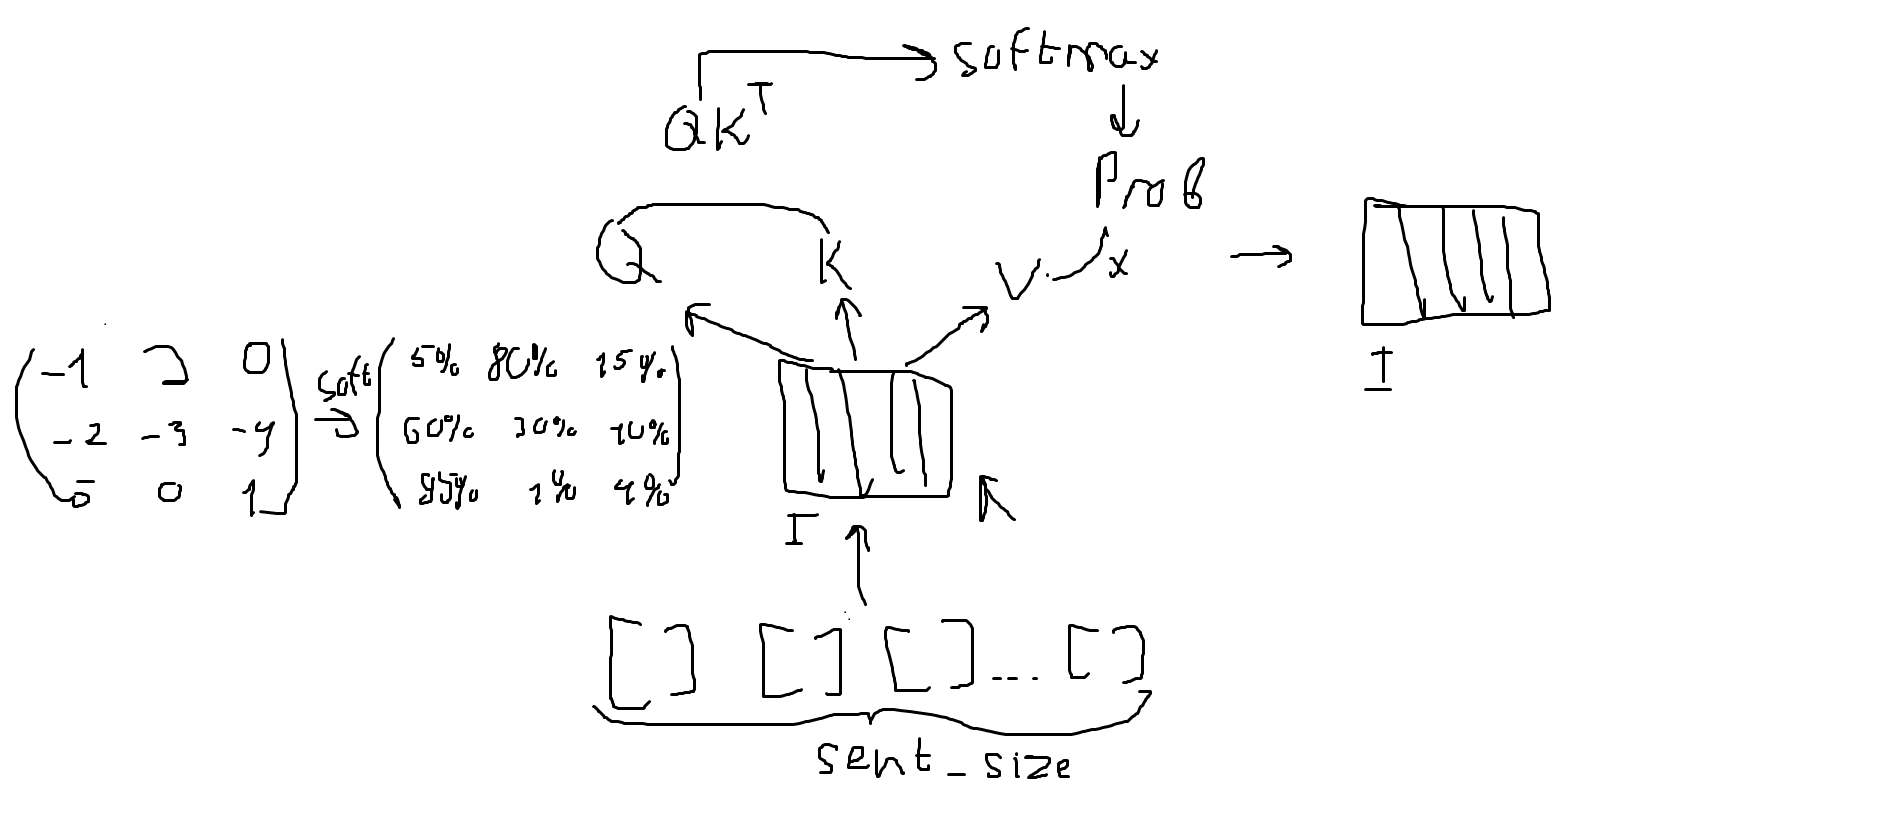 softmax
QK^T
Prob
Q K V x
I
-1 2 0
-2 -3 -4
5 0 1
soft
5% 80% 15%
60% 30% 10%
95% 1% 4%
I
[ ] [ ] [ ] ... [ ]
sent_size